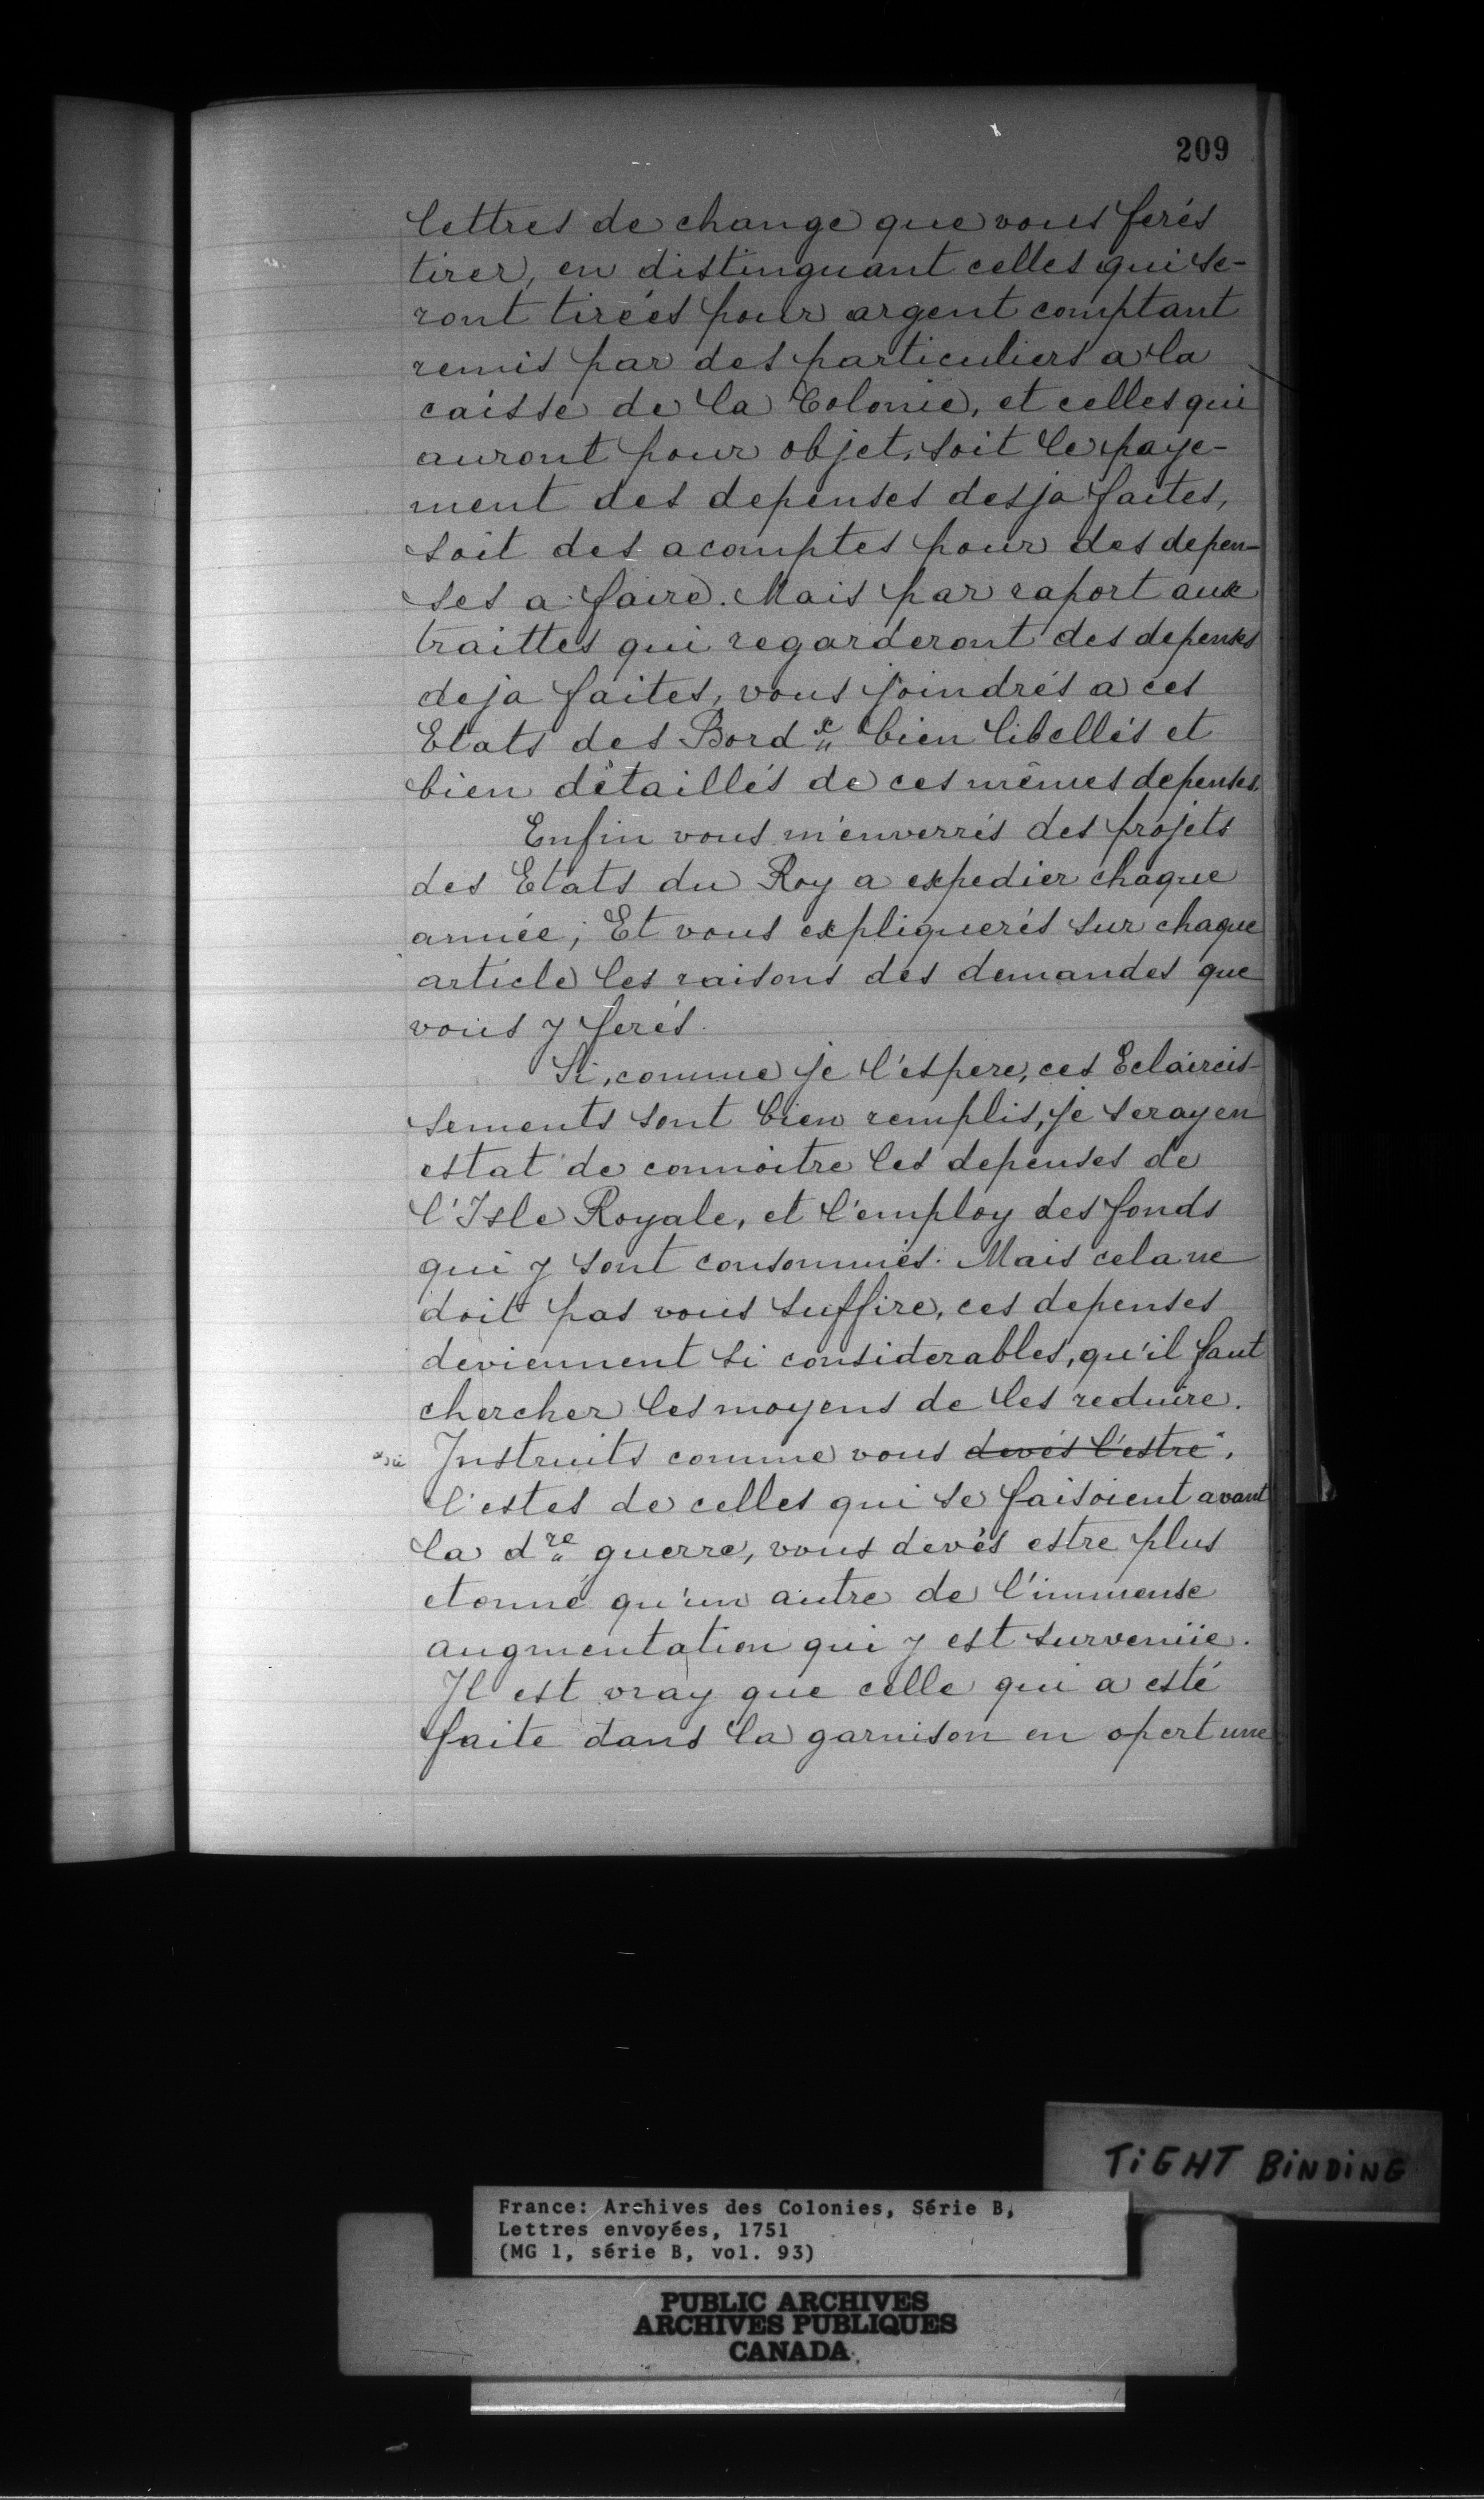 209
lettres de change que vous ferés
tirer, en distinguant celles qui se-
ront tirées pour argent comptant
remis par des particuliers a la
caisse de la Colonie, et celles qui
auront pour objet, soit le paye-
ment des depenses desja faites,
soit des acomptes pour des depen-
ses a faire. Mais par raport aux
traittes qui regarderont des depenses
deja faites, vous joindrés a ces
Etats des Bordx bien libellés et
bien détaillés de ces mêmes depenses.
Enfin vous m'enverrés des projets
des Etats du Roy a expedier chaque
année; Et vous expliquerés sur chaque
article les raisons des demandes que
vous y ferés.
Si, comme je l'espere, ces Eclaircis-
sements sont bien remplis, je seray en
estat de connoitre les depenses de
l'Isle Royale, et l'employ des fonds
qui y sont consommés. Mais cela ne
doit pas vous suffire, ces depenses
deviennent si considerables, qu'il faut
chercher les moyens de les reduire.
Instruits comme vous devés l'estre*,
l'estes de celles qui se faisoient avant
la dre guerre, vous devés estre plus
etonné qu'un autre de l'immense
augmentation qui y est survenüe.
Il est vray que celle qui a esté
faite dans la garnison en opert une
TiGHT BiNDiNG
France: Archives des Colonies, Série B,
Lettres envoyées, 1751
(MG 1, série B, vol. 93)
PUBLIC ARCHIVES
ARCHIVES PUBLIQUES
CANADA